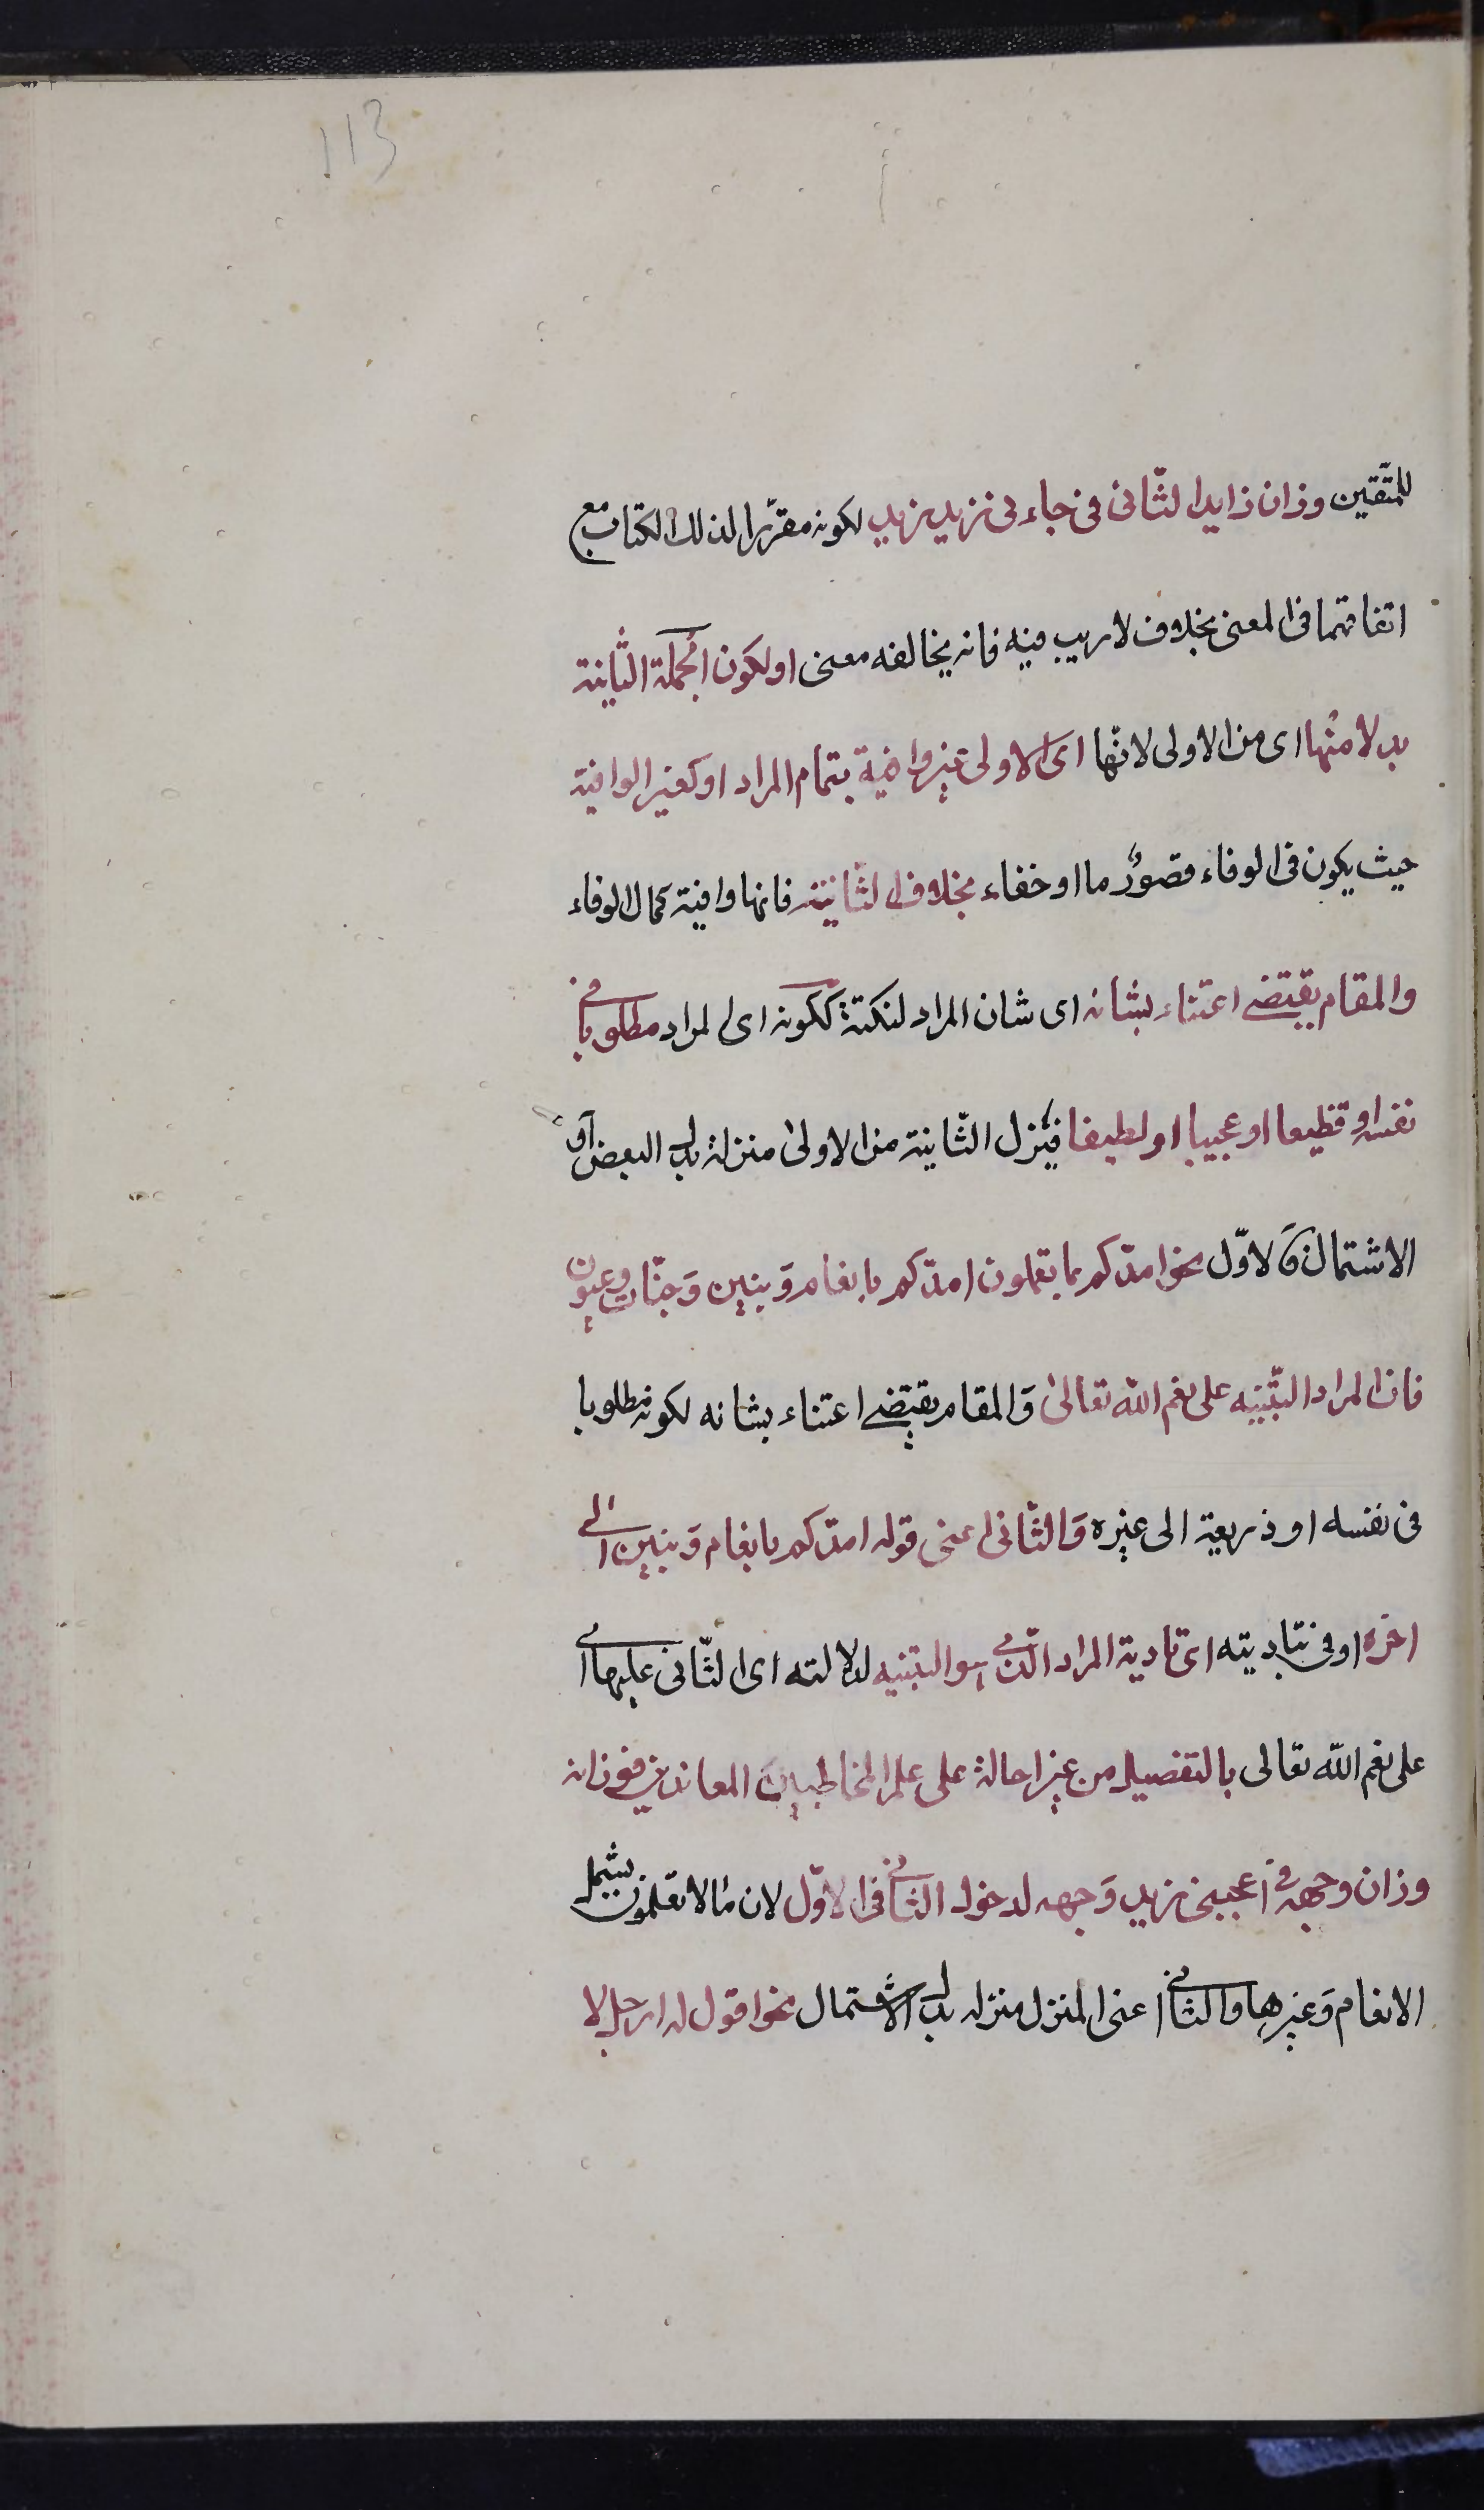 113
للمتّقين وزان زايدا لثّانى فى جاءنى زيد زيد لكونه مقرّرا لذلك الكتاب مع
اتفاقهما فى المعنى بخلاف لا ريب فيه فانه يخالفه معنى او لكون الجملة الثّانية
بدلا منها اى من الاولى لانّها اى الاولى غير وافية بتمام المراد او كغير الوافية
حيث يكون فى الوفاء قصورٌ ما او خفاء بخلاف الثّانية فانها وافية كمال الوفاء
والمقام يقتضى اعتناء بشانه اى شان المراد لنكتة ككونه اى المراد مطلوبا فى
نفسه او فظيعا او عجيبا او لطيفا فيُنزل الثّانية من الاولى منزلة بدل البعض او
الاشتمال فالاوّل نحو امدّكم بما تعلمون امدّكم بانعام وَبنين وَجنّات وعيون
فان المراد التّنبيه على نعم الله تعالى وَالمقام يقتضى اعتناء بشانه لكونه مطلوبا
فى نفسه او ذريعة الى غيره وَالثّانى اعنى قوله امدّكم بانعام وَبنين الى
اخره اوفى بتاديته اى تادية المراد الّذى هو التنبيه لدلالته اى الثّانى عليها اى
على نعم الله تعالى بالتفصيل من غير احالة على علم المخاطبين المعاندين فوزانه
وزان وجهه فى اعجبنى زيد وَجهه لدخول الثّانى فى الاوّل لان ما لا تعلمون يشمل
الانعام وَغيرها والثّانى اعنى المنزل منزلة بدل الاشتمال نحو اقول له ارحل لا